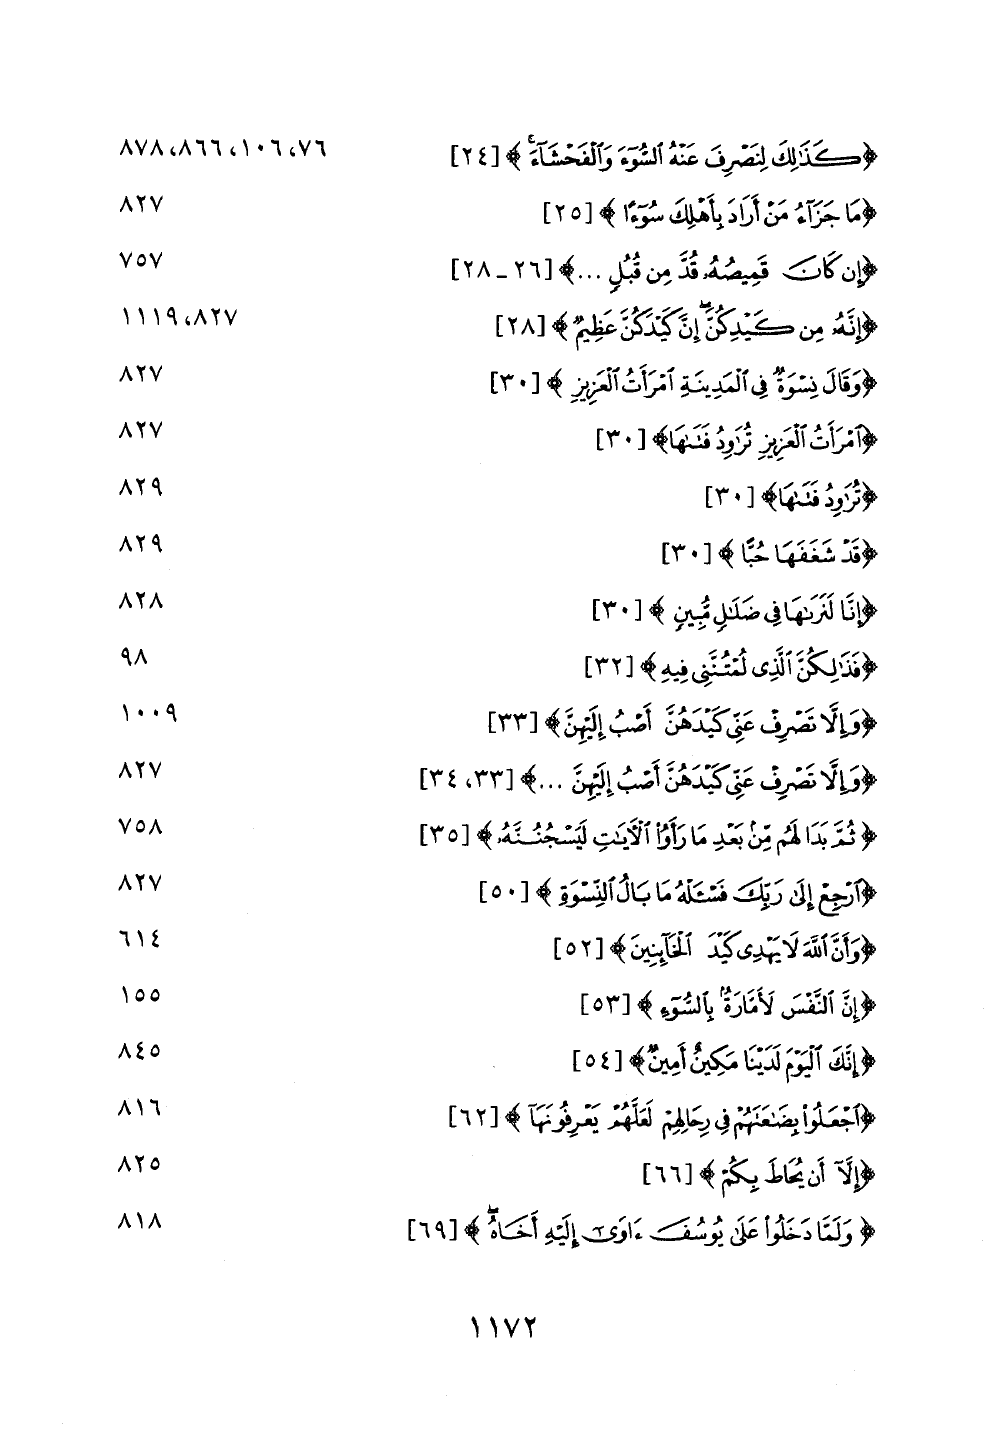 ﴿كَذَٰلِكَ لِنَصْرِفَ عَنْهُ ٱلسُّوٓءَ وَٱلْفَحْشَآءَ ۚ﴾ [٢٤] ٧٦، ١٠٦، ٨٦٦، ٨٧٨
﴿مَا جَزَآءُ مَنْ أَرَادَ بِأَهْلِكَ سُوٓءًا﴾ [٢٥] ٨٢٧
﴿إِن كَانَ قَمِيصُهُۥ قُدَّ مِن قُبُلٍ ...﴾ [٢٦ - ٢٨] ٧٥٧
﴿إِنَّهُۥ مِن كَيْدِكُنَّ ۖ إِنَّ كَيْدَكُنَّ عَظِيمٌ﴾ [٢٨] ٨٢٧، ١١١٩
﴿وَقَالَ نِسْوَةٌ فِى ٱلْمَدِينَةِ ٱمْرَأَتُ ٱلْعَزِيزِ﴾ [٣٠] ٨٢٧
﴿ٱمْرَأَتُ ٱلْعَزِيزِ تُرَٰوِدُ فَتَىٰهَا﴾ [٣٠] ٨٢٧
﴿تُرَٰوِدُ فَتَىٰهَا﴾ [٣٠] ٨٢٩
﴿قَدْ شَغَفَهَا حُبًّا﴾ [٣٠] ٨٢٩
﴿إِنَّا لَنَرَىٰهَا فِى ضَلَٰلٍ مُّبِينٍ﴾ [٣٠] ٨٢٨
﴿فَذَٰلِكُنَّ ٱلَّذِى لُمْتُنَّنِى فِيهِ﴾ [٣٢] ٩٨
﴿وَإِلَّا تَصْرِفْ عَنِّى كَيْدَهُنَّ أَصْبُ إِلَيْهِنَّ﴾ [٣٣] ١٠٠٩
﴿وَإِلَّا تَصْرِفْ عَنِّى كَيْدَهُنَّ أَصْبُ إِلَيْهِنَّ ...﴾ [٣٣، ٣٤] ٨٢٧
﴿ثُمَّ بَدَا لَهُم مِّنۢ بَعْدِ مَا رَأَوُا۟ ٱلْءَايَٰتِ لَيَسْجُنُنَّهُۥ﴾ [٣٥] ٧٥٨
﴿ٱرْجِعْ إِلَىٰ رَبِّكَ فَسْـَٔلْهُ مَا بَالُ ٱلنِّسْوَةِ﴾ [٥٠] ٨٢٧
﴿وَأَنَّ ٱللَّهَ لَا يَهْدِى كَيْدَ ٱلْخَآئِنِينَ﴾ [٥٢] ٦١٤
﴿إِنَّ ٱلنَّفْسَ لَأَمَّارَةٌۢ بِٱلسُّوٓءِ﴾ [٥٣] ١٥٥
﴿إِنَّكَ ٱلْيَوْمَ لَدَيْنَا مَكِينٌ أَمِينٌ﴾ [٥٤] ٨٤٥
﴿ٱجْعَلُوا۟ بِضَٰعَتَهُمْ فِى رِحَالِهِمْ لَعَلَّهُمْ يَعْرِفُونَهَآ﴾ [٦٢] ٨١٦
﴿إِلَّآ أَن يُحَاطَ بِكُمْ﴾ [٦٦] ٨٢٥
﴿وَلَمَّا دَخَلُوا۟ عَلَىٰ يُوسُفَ ءَاوَىٰٓ إِلَيْهِ أَخَاهُ ۖ﴾ [٦٩] ٨١٨
١١٧٢